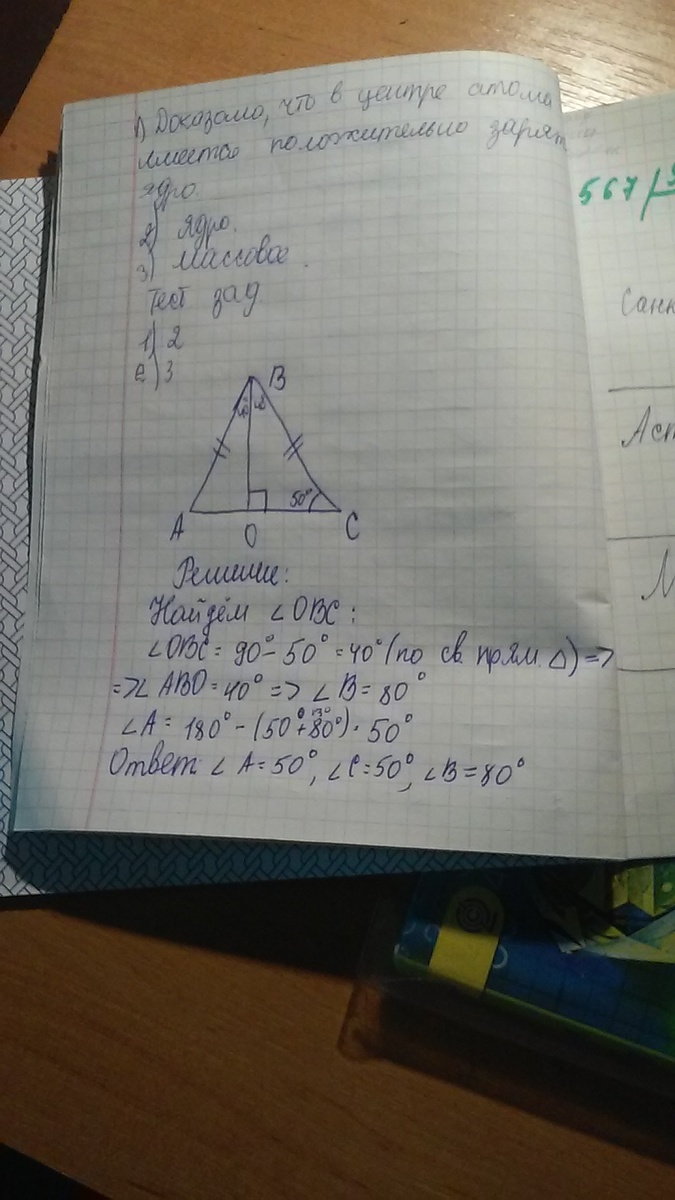 1) Доказано, что в центре атома
имеется положительно заряж
ядро.
2) Ядро.
3) Массовое.
Тест зад
1) 2
2) 3
B
40° 40°
50°
A O C
Решение:
Найдём ∠OBC:
∠OBC = 90° - 50° = 40° (по св. прям. Δ) =>
=> ∠ABO = 40° => ∠B = 80°
∠A = 180° - (50° + 80°) = 50°
Ответ: ∠A = 50°, ∠C = 50°, ∠B = 80°
567
Санк
Аст
М